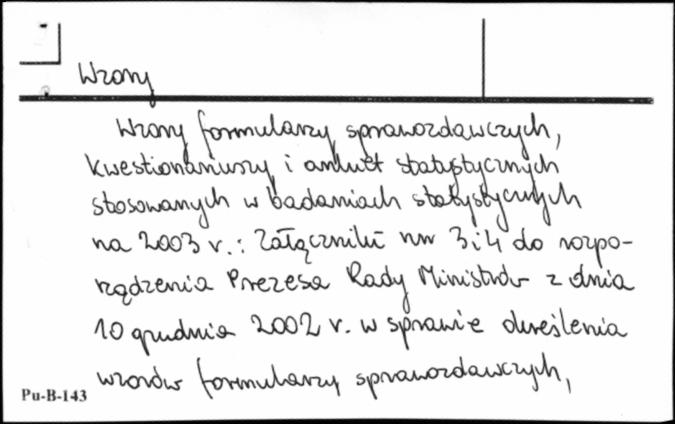 Wzory
Wzory formularzy sprawozdawczych,
kwestionariuszy i ankiet statystycznych
stosowanych w badaniach statystycznych
na 2003 r.: Załączniki nr 3 i 4 do rozpo-
rządzenia Prezesa Rady Ministrów z dnia
10 grudnia 2002 r. w sprawie określenia
wzorów formularzy sprawozdawczych,
Pu-B-143